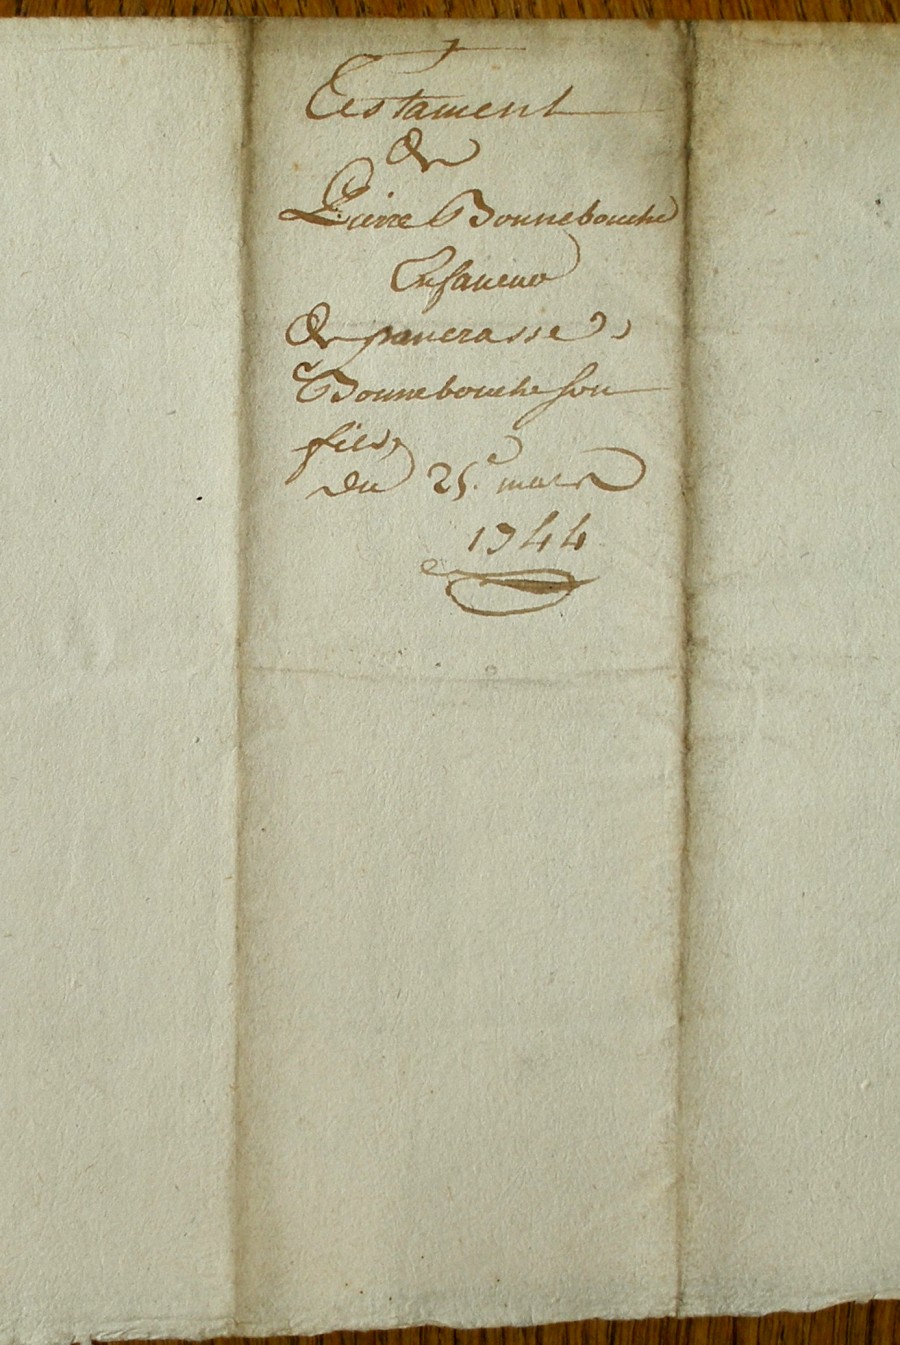 Testament
De
Pierre Bonnebouche
En faueur
De pancrasse
Bonnebouche son
fils,
Du 25.e mars
1744